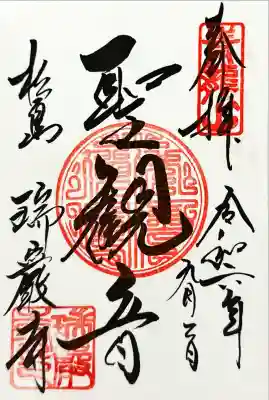 奉拝
令和六年
九月
聖観音
松島
瑞巌寺